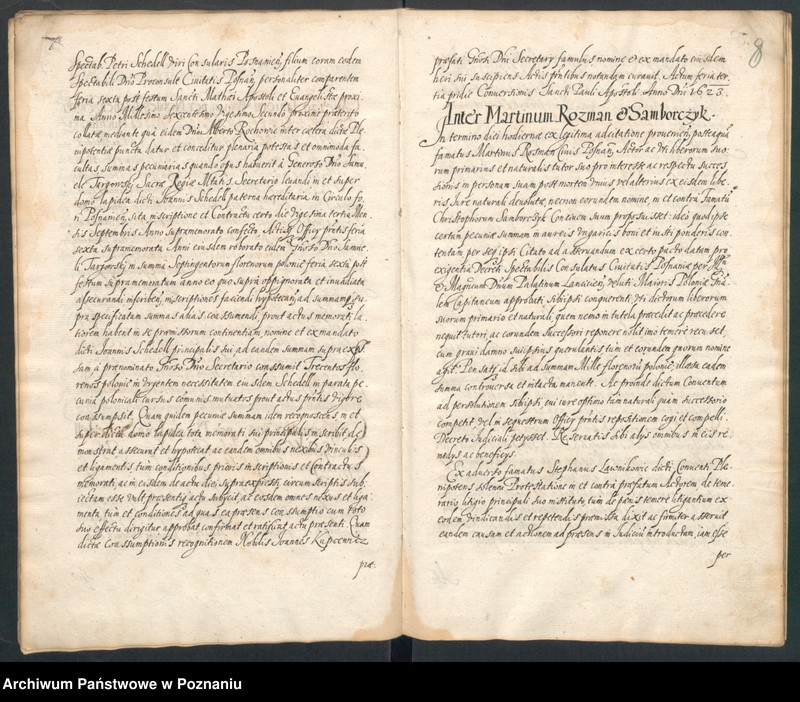 7
Spectab. Petri Schedell viri Consularis Posnanien. filium coram eodem
Spectabili Dno Proconsule Civitatis Posnan. personaliter comparentem
feria sexta post festum Sancti Mathei Apostoli et Euangelistae proxi-
ma Anno Millesimo Sexcentesimo Vigesimo Secundo proxime praeterito
collatae mediante qua eidem Dno Alberto Rochowic inter caetera dictae Ple-
nipotentiae puncta datur et conceditur plenaria potestas et omnimoda fa-
cultas summas pecuniarias quando opus habuerit à Generoso Dno Samu-
ele Targowsky Sacrae Regiae Mttis Secretario levandi et super
domo lapidea dti Joannis Schedell paterna haereditaria in Circulo fo-
ri Posnanien. sita inscriptione et Contractu certo die vigesima tertia Men-
sis Septembris Anno supramemorato confecto Actisq Officy pntis feria
sexta supramemorata Anni eiusdem roborato eidem Gnoso Dno Samue-
li Targowsky in summa Septingentorum florenorum polonic. feria sexta post
festum supramemoratum anno eo quo supra oppignorata et invadiata
assecurandi inscribendi inscriptiones faciendi hypotecandi ad summamq su-
pra specificatam summas alias coassumendi prout actus memorati la-
tiorem habent in se praemissorum continentiam, nomine et ex mandato
dicti Joannis Schedell principalis sui ad eandem summam supraexps-
sam à praenominato Gnoso Dno Secretario consumit Trecentos flo-
renos polonic. in urgentem necessitatem eiusdem Schedell in parata pe-
cunia polonicali cursus communis mutuatos prout actus pntis vigore
coassumpsit. Quam quidem pecuniae summam idem recognoscens, in et
super dicta domo lapidea toti memorati sui principalis inscribit de-
monstrat assecurat et hypotecat ac eandem omnibus nexibus vinculis
et ligamentis tum conditionibus prioris inscriptionis et Contractus
memorati ac in eisdem de actu dici supraexpressi, circumscriptis sub-
iectam esse vult praesentis actu subijcit ac eosdem omnes nexus et liga-
menta tum et conditiones ad quas ea praesens consumptio cum toto
suo effectu dirigitur approbat confirmat et ratificat actu praesenti. Quam
dictae Coassumptionis recognitionem Nobilis Joannes Kupcewicz
prae.
8
praefati Gnosi Dni Secretary famulus nomine et ex mandato eiusdem
heri sui suscipiens Actis pntibus notandam curavit. Actum feria ter-
tia pridie Conversionis Sancti Pauli Apostoli. Anno Dni 1623.
Inter Martinum Rozman & Samborczyk.
In termino diei hodiernae ex legitima adcitatione provenien. postquam
famatus Martinus Rozman Civis Posnan. Actor ac dti liberorum suo-
rum primarius et naturalis tutor suo pro interesse ac respectu succes-
sionis in personam suam post mortem unius vel alterius ex eisdem libe-
ris, Jure naturali devolutae, necnon eorundem nomine, in et contra famatu
Christophorum Samborczyk Concivem suum proposuisset: ideo quod ipse
certam pecuniae summam in aureis Ungaricis boni et iusti ponderis con-
tentam per se ipsi Citato ad asservandum ex certo pacto datam pro
exigentia Decreti Spectabilis Consulatus Civitatis Posnan. per Illm
& Magnificum Dnum Palatinum Lancicien. veluti Maioris Poloniae Gna-
lem Capitaneum approbati, sibi ipsi conquerenti, dti dictrum liberorum
suorum primario et naturali, quem nemo in tutela praecedit ac praecedere
nequit tutori, ac eorundem successori reponere nollet imo temere recuset,
cum gravi damno sui ipsius querulantis tum et eorundem quorum nomine
agit. Pensatq id sibi ad summam Mille florenoru polonic. illaesa eadem
summa controversa et intacta manente. Ac proinde dictum Conventum
ad persolutionem sibi ipsi, cui iure optimo tam naturali quam successorio
competit, vel in sequestrum Officy pntis repositionem cogi et compelli
Decreto Judiciali petysset. Reservatis sibi alys omnibus in eis re-
medys ac beneficys.
Ex adverso famatus Stephanus Ławnikowic dicti Conventi Ple-
nipotens solenni Protestatione in et contra praefatum Actorem de teme-
rario litigio principali suo instituto, tum de paenis temere litigantium ex
eorum vindicandis et repetendis praemissa dixit ac firmiter asseruit
eandem causam et actionem ad praesens in Judicium introductam, iam esse
per
Archiwum Państwowe w Poznaniu